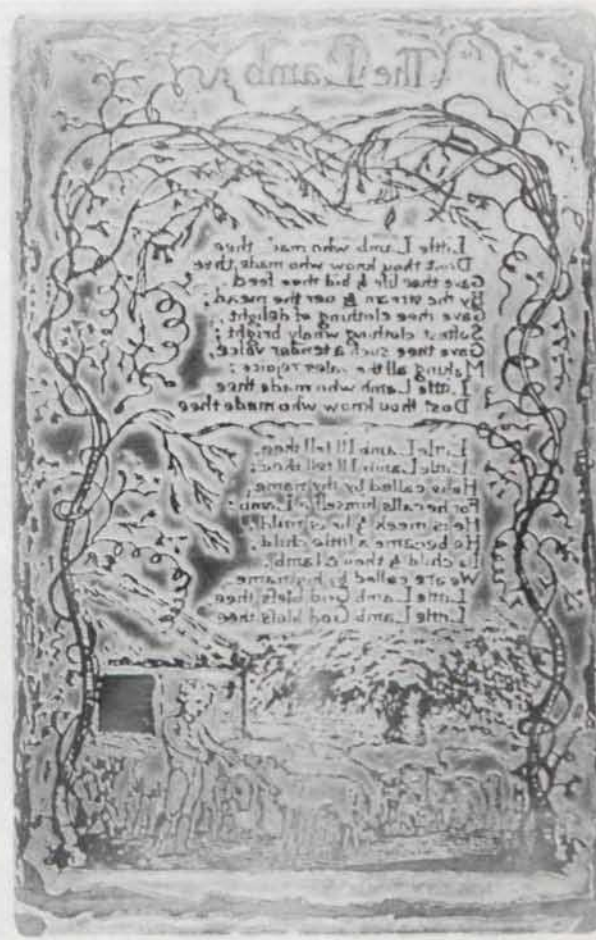 The Lamb
Little Lamb who made thee
Dost thou know who made thee
Gave thee life & bid thee feed
By the stream & oer the mead;
Gave thee clothing of delight,
Softest clothing wooly bright;
Gave thee such a tender voice,
Making all the vales rejoice:
Little Lamb who made thee
Dost thou know who made thee
Little Lamb I'll tell thee,
Little Lamb I'll tell thee:
He is called by thy name,
For he calls himself a Lamb:
He is meek & he is mild,
He became a little child:
I a child & thou a lamb,
We are called by his name.
Little Lamb God bless thee
Little Lamb God bless thee